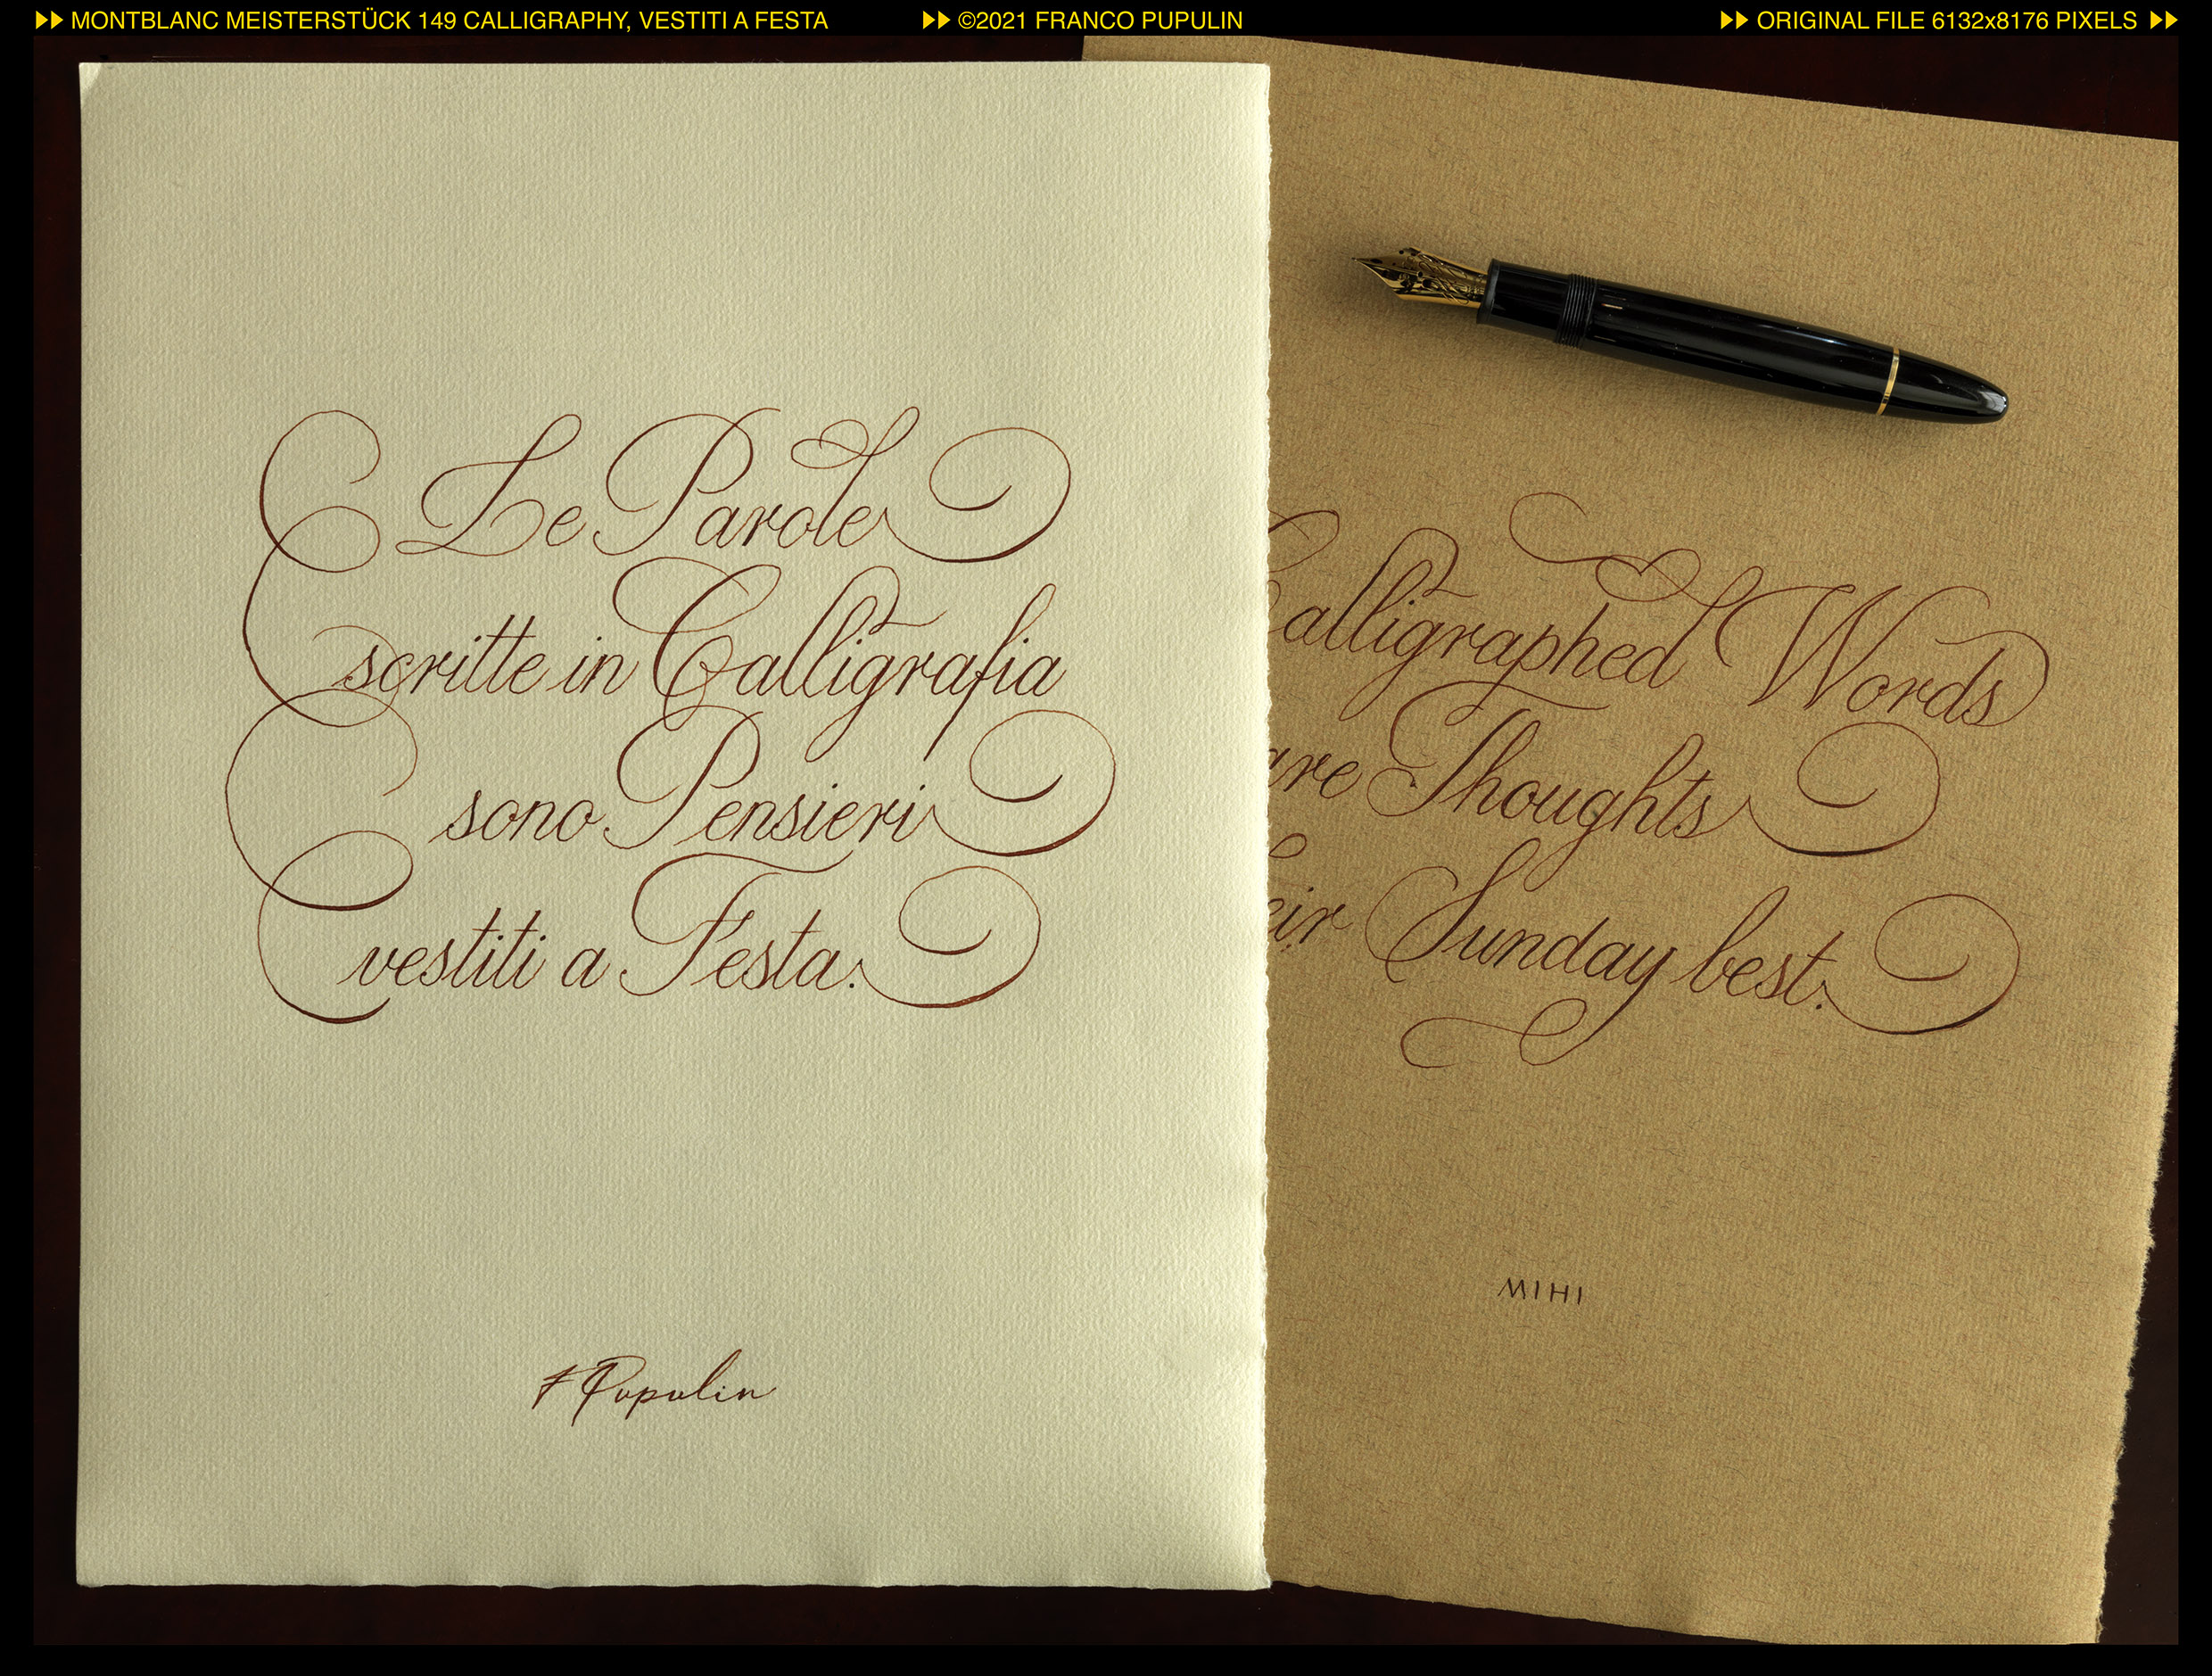 MONTBLANC MEISTERSTÜCK 149 CALLIGRAPHY, VESTITI A FESTA
©2021 FRANCO PUPULIN
ORIGINAL FILE 6132x8176 PIXELS
Le Parole
scritte in Calligrafia
sono Pensieri
vestiti a Festa.
FPupulin
alligraphed Words
are Thoughts
eir Sunday best.
MIHI